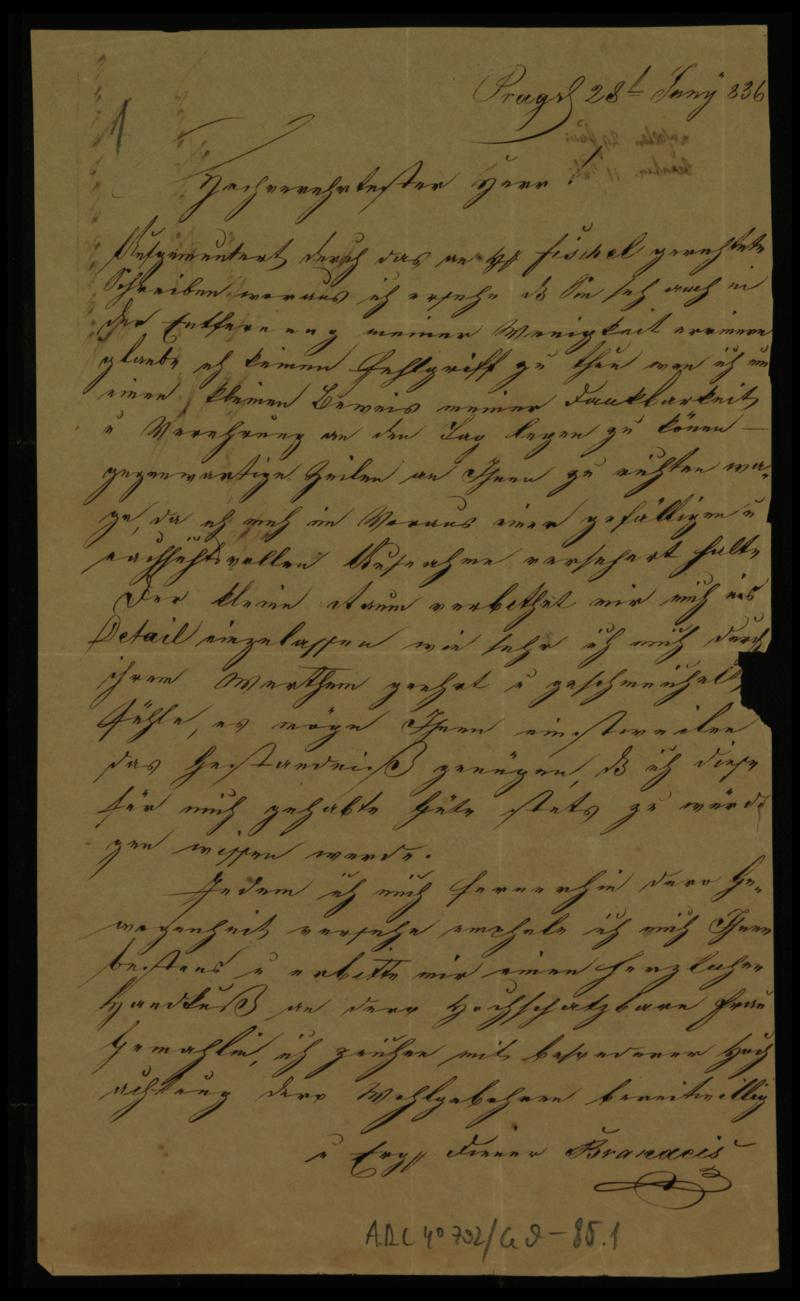 Prag d 28t Juny 836
1
Hochverehrtester Herr!
Aufgemuntert durch das an H Fischel gerichtete
Schreiben woraus ich ersehe dß Sie sich auch in
der Entfernung meiner Wenigkeit erinern
glaube ich keinen Fehlgriff zu thun wen ich um
einen kleinen Beweis meiner Dankbarkeit
u Verehrung an den Tag legen zu könen —
gegenwärtige Zeilen an Ihnen zu richten wa-
ge, da ich mich im Voraus einer gefälligen u
nachsichtsvollen Aufnahme versichert halte
Der kleine Raum verbethet mir mich ins
Detail einzulassen wie sehr ich mich durch
ihrem Werthem geehrt u geschmeichelt
fühle, es möge Ihnen einstweilen
das Geständniß genügen, dß ich diese
für mich gehabte Güte stets zu würdi
gen wissen werde.
Indem ich mich fernerhin dero Ge-
wogenheit versehe empfele ich mich Ihnen
bestens u erbitte mir einen herzlichen
Handkuß an dero Hochschatzbare Frau
Gemahlin, ich zeichne mit besonderer Hoch
achtung dero Wohlgebohren bereitwillig
u Erg Diener Brandeis
ARC 4° 792/G9-85.1